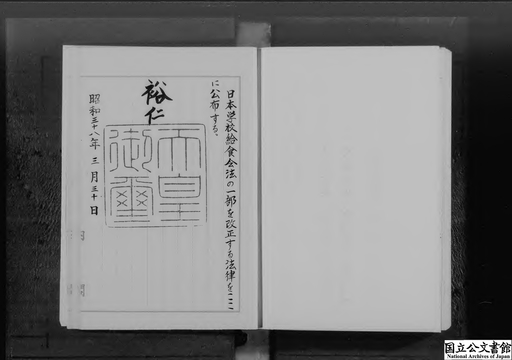 日本学校給食会法の一部を改正する法律をここ
に公布する。
裕仁
天皇
御璽
昭和三十八年三月三十日
国立公文書館
National Archives of Japan